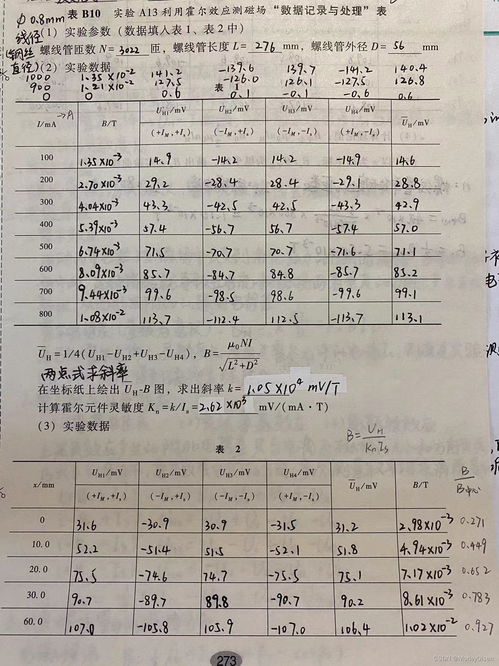 Φ0.8mm 表 B10 实验 A13 利用霍尔效应测磁场“数据记录与处理”表
线径 (1) 实验参数(数据填入表1、表2中)
(铜丝 螺线管匝数 N= 3022 匝, 螺线管长度 L= 276 mm, 螺线管外径 D= 56 mm
直径) (2) 实验数据
1000 1.35×10⁻² 141.2 -139.6 139.7 -141.2 140.4
900 1.21×10⁻² 127.5 -126.0 126.1 -127.5 126.8
0 0 0.6 0.1 -0.1 -0.6 0.6
表 1
I/mA →A B/T U_H1/mV U_H2/mV U_H3/mV U_H4/mV U̅_H/mV
(+I_M,+I_s) (-I_M,+I_s) (-I_M,-I_s) (+I_M,-I_s)
100 1.35×10⁻³ 14.9 -14.2 14.2 -14.9 14.6
200 2.70×10⁻³ 29.2 -28.4 28.4 -29.1 28.8
300 4.04×10⁻³ 43.3 -42.5 42.5 -43.3 42.9
400 5.39×10⁻³ 57.4 -56.7 56.7 -57.4 57.0
500 6.74×10⁻³ 71.5 -70.7 70.7 -71.6 71.1
600 8.09×10⁻³ 85.7 -84.7 84.8 -85.7 85.2
700 9.44×10⁻³ 99.6 -98.5 98.6 -99.6 99.1
800 1.08×10⁻² 113.7 -112.4 112.5 -113.7 113.1
U̅_H=1/4(U_H1-U_H2+U_H3-U_H4), B=μ₀NI/√(L²+D²)
两点式求斜率
在坐标纸上绘出 U_H-B 图, 求出斜率 k= 1.05×10⁴ mV/T
计算霍尔元件灵敏度 K_n=k/I_s= 2.62×10³ mV/(mA·T)
(3) 实验数据 B=U_H/K_nI_s
表 2
x/mm U_H1/mV U_H2/mV U_H3/mV U_H4/mV U̅_H/mV B/T
(+I_M,+I_s) (-I_M,+I_s) (-I_M,-I_s) (+I_M,-I_s)
0 31.6 -30.9 30.9 -31.5 31.2 2.98×10⁻³ 0.271
10.0 52.2 -51.4 51.5 -52.1 51.8 4.94×10⁻³ 0.449
20.0 75.5 -74.6 74.7 -75.5 75.1 7.17×10⁻³ 0.652
30.0 90.7 -89.7 89.8 -90.7 90.2 8.61×10⁻³ 0.783
60.0 107.0 -105.8 105.9 -107.0 106.4 1.02×10⁻² 0.927
273